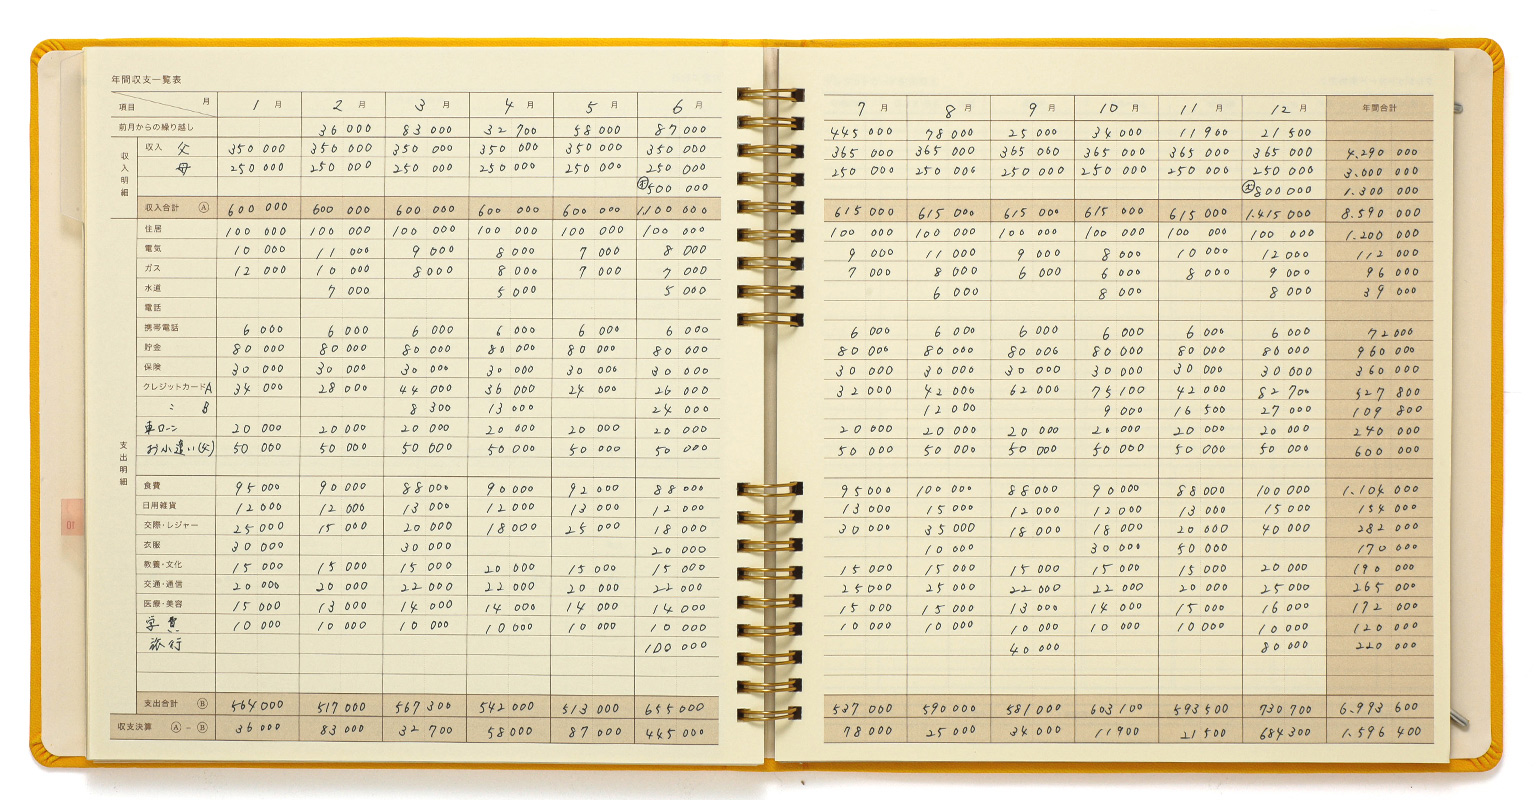 年間収支一覧表
項目 月 1月 2月 3月 4月 5月 6月 7月 8月 9月 10月 11月 12月 年間合計
前月からの繰り越し 36 000 83 000 32 700 58 000 87 000 445 000 78 000 25 000 34 000 11 900 21 500
収入明細
収入 父 350 000 350 000 350 000 350 000 350 000 350 000 365 000 365 000 365 000 365 000 365 000 365 000 4.290 000
母 250 000 250 000 250 000 250 000 250 000 250 000 250 000 250 000 250 000 250 000 250 000 250 000 3.000 000
500 000 800 000 1.300 000
収入合計 Ⓐ 600 000 600 000 600 000 600 000 600 000 1.100 000 615 000 615 000 615 000 615 000 615 000 1.415 000 8.590 000
支出明細
住居 100 000 100 000 100 000 100 000 100 000 100 000 100 000 100 000 100 000 100 000 100 000 100 000 1.200 000
電気 10 000 11 000 9 000 8 000 7 000 8 000 9 000 11 000 9 000 8 000 10 000 12 000 112 000
ガス 12 000 10 000 8 000 8 000 7 000 7 000 7 000 8 000 6 000 6 000 8 000 9 000 96 000
水道 7 000 5 000 5 000 6 000 8 000 8 000 39 000
電話
携帯電話 6 000 6 000 6 000 6 000 6 000 6 000 6 000 6 000 6 000 6 000 6 000 6 000 72 000
貯金 80 000 80 000 80 000 80 000 80 000 80 000 80 000 80 000 80 000 80 000 80 000 80 000 960 000
保険 30 000 30 000 30 000 30 000 30 000 30 000 30 000 30 000 30 000 30 000 30 000 30 000 360 000
クレジットカードA 34 000 28 000 44 000 36 000 24 000 26 000 32 000 42 000 62 000 75 100 42 000 82 700 527 800
〃 B 8 300 13 000 24 000 12 000 9 000 16 500 27 000 109 800
車ローン 20 000 20 000 20 000 20 000 20 000 20 000 20 000 20 000 20 000 20 000 20 000 20 000 240 000
お小遣い(父) 50 000 50 000 50 000 50 000 50 000 50 000 50 000 50 000 50 000 50 000 50 000 50 000 600 000
食費 95 000 90 000 88 000 90 000 92 000 88 000 95 000 100 000 88 000 90 000 88 000 100 000 1.104 000
日用雑貨 12 000 12 000 13 000 12 000 13 000 12 000 13 000 15 000 12 000 12 000 13 000 15 000 154 000
交際・レジャー 25 000 15 000 20 000 18 000 25 000 18 000 30 000 35 000 18 000 18 000 20 000 40 000 282 000
衣服 30 000 30 000 20 000 10 000 30 000 50 000 170 000
教養・文化 15 000 15 000 15 000 20 000 15 000 15 000 15 000 15 000 15 000 15 000 15 000 20 000 190 000
交通・通信 20 000 20 000 22 000 22 000 20 000 22 000 25 000 25 000 22 000 22 000 20 000 25 000 265 000
医療・美容 15 000 13 000 14 000 14 000 14 000 14 000 15 000 15 000 13 000 14 000 15 000 16 000 172 000
学費 10 000 10 000 10 000 10 000 10 000 10 000 10 000 10 000 10 000 10 000 10 000 10 000 120 000
旅行 100 000 40 000 80 000 220 000
支出合計 Ⓑ 564 000 517 000 567 300 542 000 513 000 655 000 537 000 590 000 581 000 603 100 593 500 730 700 6.993 600
収支決算 Ⓐ－Ⓑ 36 000 83 000 32 700 58 000 87 000 445 000 78 000 25 000 34 000 11 900 21 500 684 300 1.596 400
10